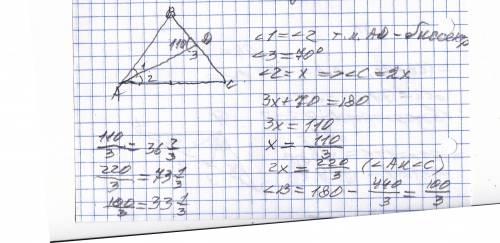 B
110°
D
3
1
2
A
C
∠1=∠2 т.к. AD - биссектр
∠3=70°
∠2=x => ∠C=2x
3x+70=180
3x=110
x= 110/3
2x= 220/3 (∠A и ∠C)
∠B=180- 440/3 = 100/3
110/3 = 36 2/3
220/3 = 73 1/3
100/3 = 33 1/3